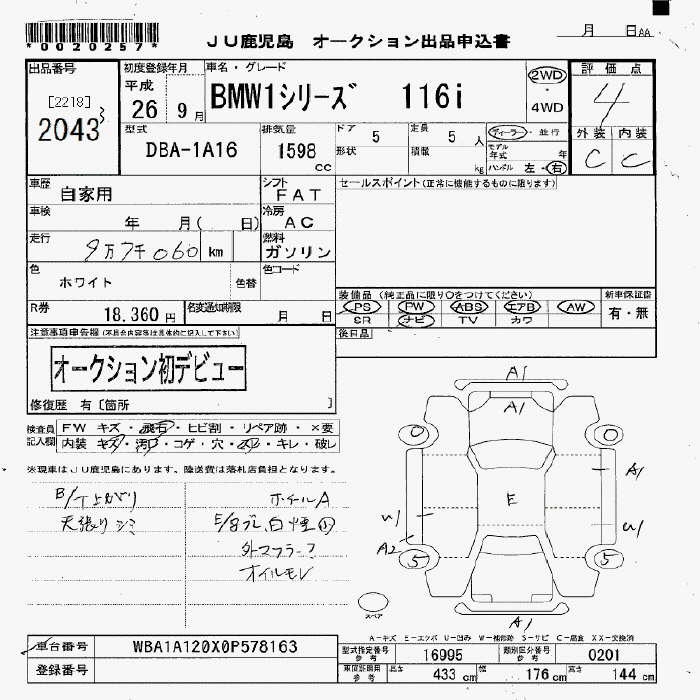 *0020257*
JU鹿児島 オークション出品申込書
月 日AA
出品番号
[2218]
2043
3
初度登録年月
平成
26 9月
車名・グレード
BMW1シリーズ 116i
2WD
・
4WD
評価点
4
外装 内装
C C
型式
DBA-1A16
排気量
1598
cc
ドア 5
定員 5 人
形状
積載 kg
ディーラー・並行
モデル年式 年
ハンドル 左・右
車歴
自家用
シフト
FAT
セールスポイント(正常に機能するものに限ります)
車検
年 月( 日)
冷房
AC
走行
9万7千060 km
燃料
ガソリン
色
ホワイト
色替
色コード
R券
18,360円
名変通知期限
月 日
装備品(純正品に限り○をつけてください)
PS PW ABS エアB AW
SR ナビ TV カワ
新車保証書
有・無
後日品
注意事項申告欄(不具合内容等は具体的に記入して下さい)
オークション初デビュー
修復歴 有〔箇所 〕
検査員
記入欄
FW キズ・飛石・ヒビ割・リペア跡・×要
内装 キズ・汚れ・コゲ・穴・スレ・キレ・破レ
※現車はJU鹿児島にあります。陸送費は落札店負担となります。
B/T上がり
天張りシミ
ホイールA
E/gブレ,白煙
外マフラー
オイルモレ
A1
A1
0 0
A1
E
U1 U1
A2
5 5
A1
スペア
A-キズ E-エクボ U-凹み W-補修跡 S-サビ C-腐食 XX-交換済
車台番号 WBA1A120X0P578163
登録番号
型式指定番号
参考
16995
類別区分番号
参考
0201
車庫証明用
参考
長さ 433 cm
幅 176 cm
高さ 144 cm